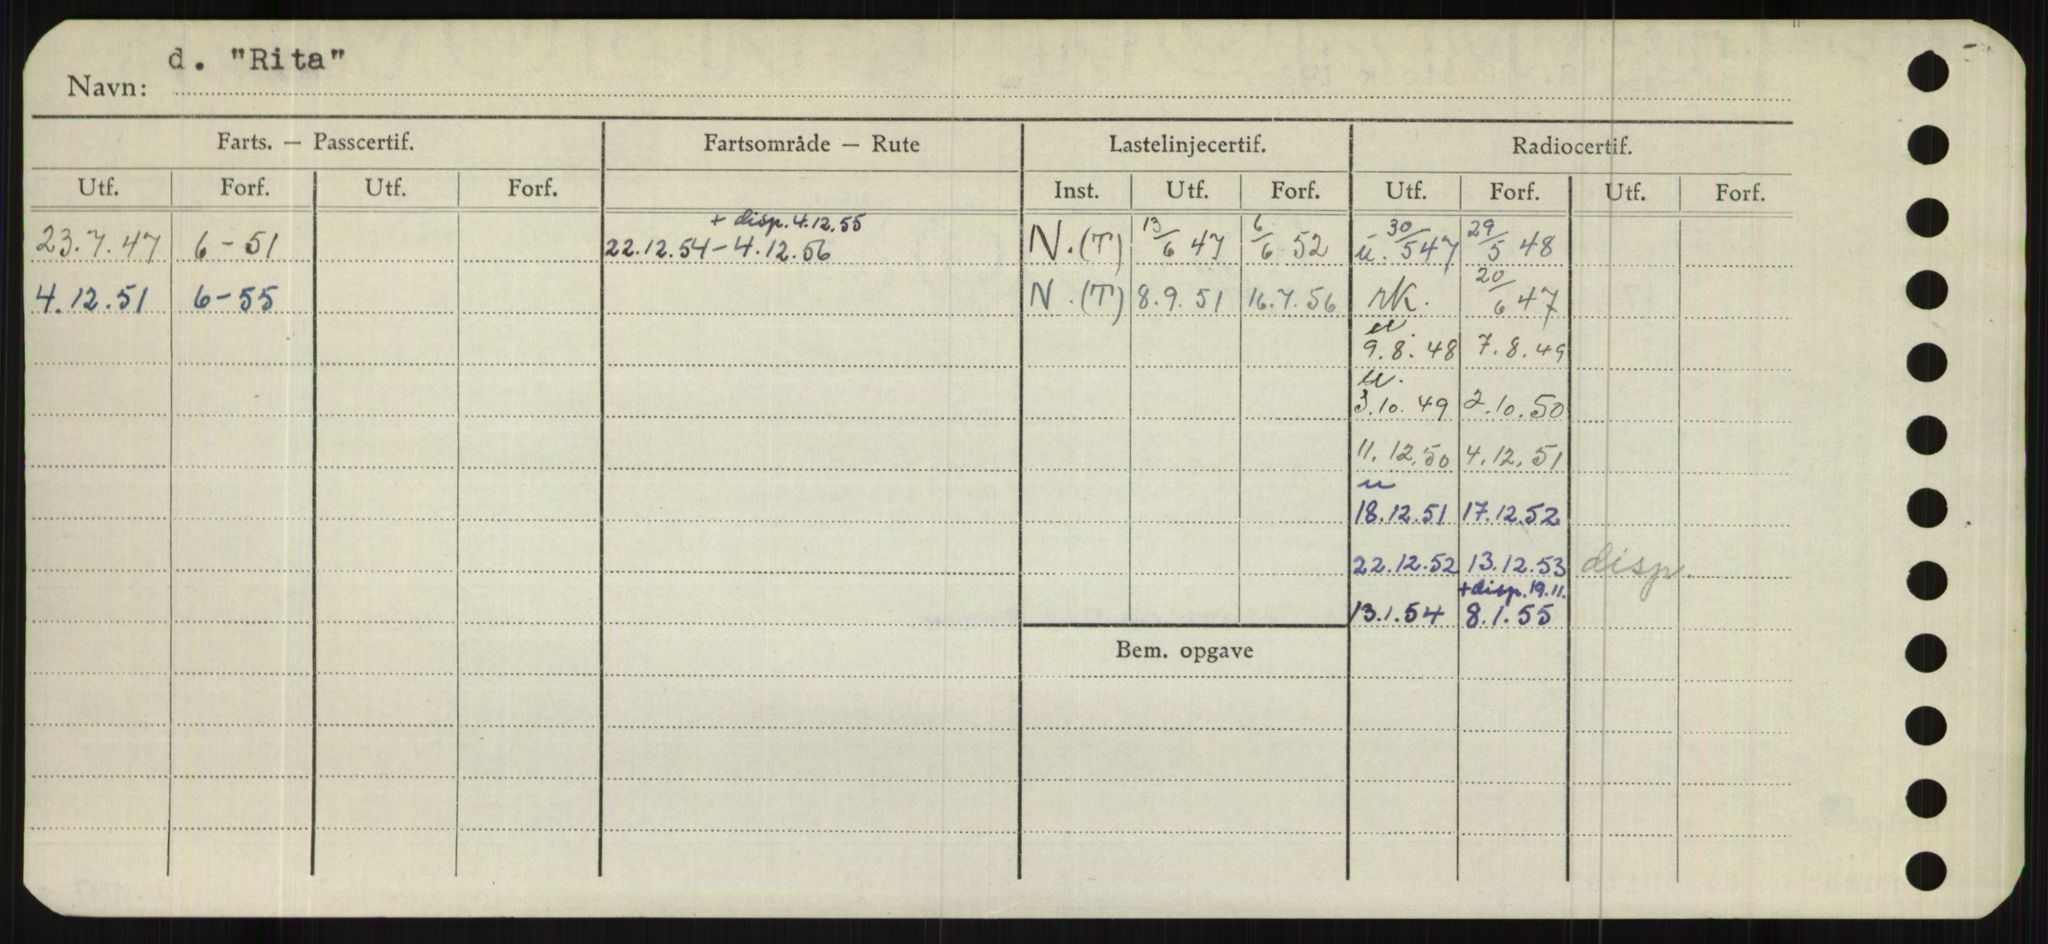 Navn: d. "Rita"
Farts. — Passcertif. Fartsområde — Rute Lastelinjecertif. Radiocertif.
Utf. Forf. Utf. Forf. Inst. Utf. Forf. Utf. Forf. Utf. Forf.
+ disp. 4.12.55
23.7.47 6-51 22.12.54-4.12.56 N.(T) 13/6 47 6/6 52 u. 30/5 47 29/5 48
4.12.51 6-55 N.(T) 8.9.51 16.7.56 rk. 20/6 47
u.
9.8.48 7.8.49
u.
3.10.49 2.10.50
11.12.50 4.12.51
u
18.12.51 17.12.52
22.12.52 13.12.53 disp.
+disp.19.11.
13.1.54 8.1.55
Bem. opgave